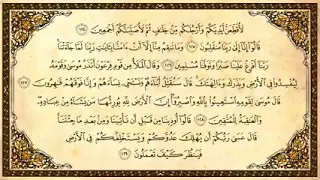 لَأُقَطِّعَنَّ أَيْدِيَكُمْ وَأَرْجُلَكُم مِّنْ خِلَٰفٍ ثُمَّ لَأُصَلِّبَنَّكُمْ أَجْمَعِينَ ١٢٤
قَالُوٓا۟ إِنَّآ إِلَىٰ رَبِّنَا مُنقَلِبُونَ ١٢٥ وَمَا تَنقِمُ مِنَّآ إِلَّآ أَنْ ءَامَنَّا بِـَٔايَٰتِ رَبِّنَا لَمَّا جَآءَتْنَا
رَبَّنَآ أَفْرِغْ عَلَيْنَا صَبْرًا وَتَوَفَّنَا مُسْلِمِينَ ١٢٦ وَقَالَ ٱلْمَلَأُ مِن قَوْمِ فِرْعَوْنَ أَتَذَرُ مُوسَىٰ وَقَوْمَهُۥ
لِيُفْسِدُوا۟ فِى ٱلْأَرْضِ وَيَذَرَكَ وَءَالِهَتَكَ قَالَ سَنُقَتِّلُ أَبْنَآءَهُمْ وَنَسْتَحْىِۦ نِسَآءَهُمْ وَإِنَّا فَوْقَهُمْ قَٰهِرُونَ ١٢٧
قَالَ مُوسَىٰ لِقَوْمِهِ ٱسْتَعِينُوا۟ بِٱللَّهِ وَٱصْبِرُوٓا۟ إِنَّ ٱلْأَرْضَ لِلَّهِ يُورِثُهَا مَن يَشَآءُ مِنْ عِبَادِهِۦ
وَٱلْعَٰقِبَةُ لِلْمُتَّقِينَ ١٢٨ قَالُوٓا۟ أُوذِينَا مِن قَبْلِ أَن تَأْتِيَنَا وَمِنۢ بَعْدِ مَا جِئْتَنَا
قَالَ عَسَىٰ رَبُّكُمْ أَن يُهْلِكَ عَدُوَّكُمْ وَيَسْتَخْلِفَكُمْ فِى ٱلْأَرْضِ
فَيَنظُرَ كَيْفَ تَعْمَلُونَ ١٢٩